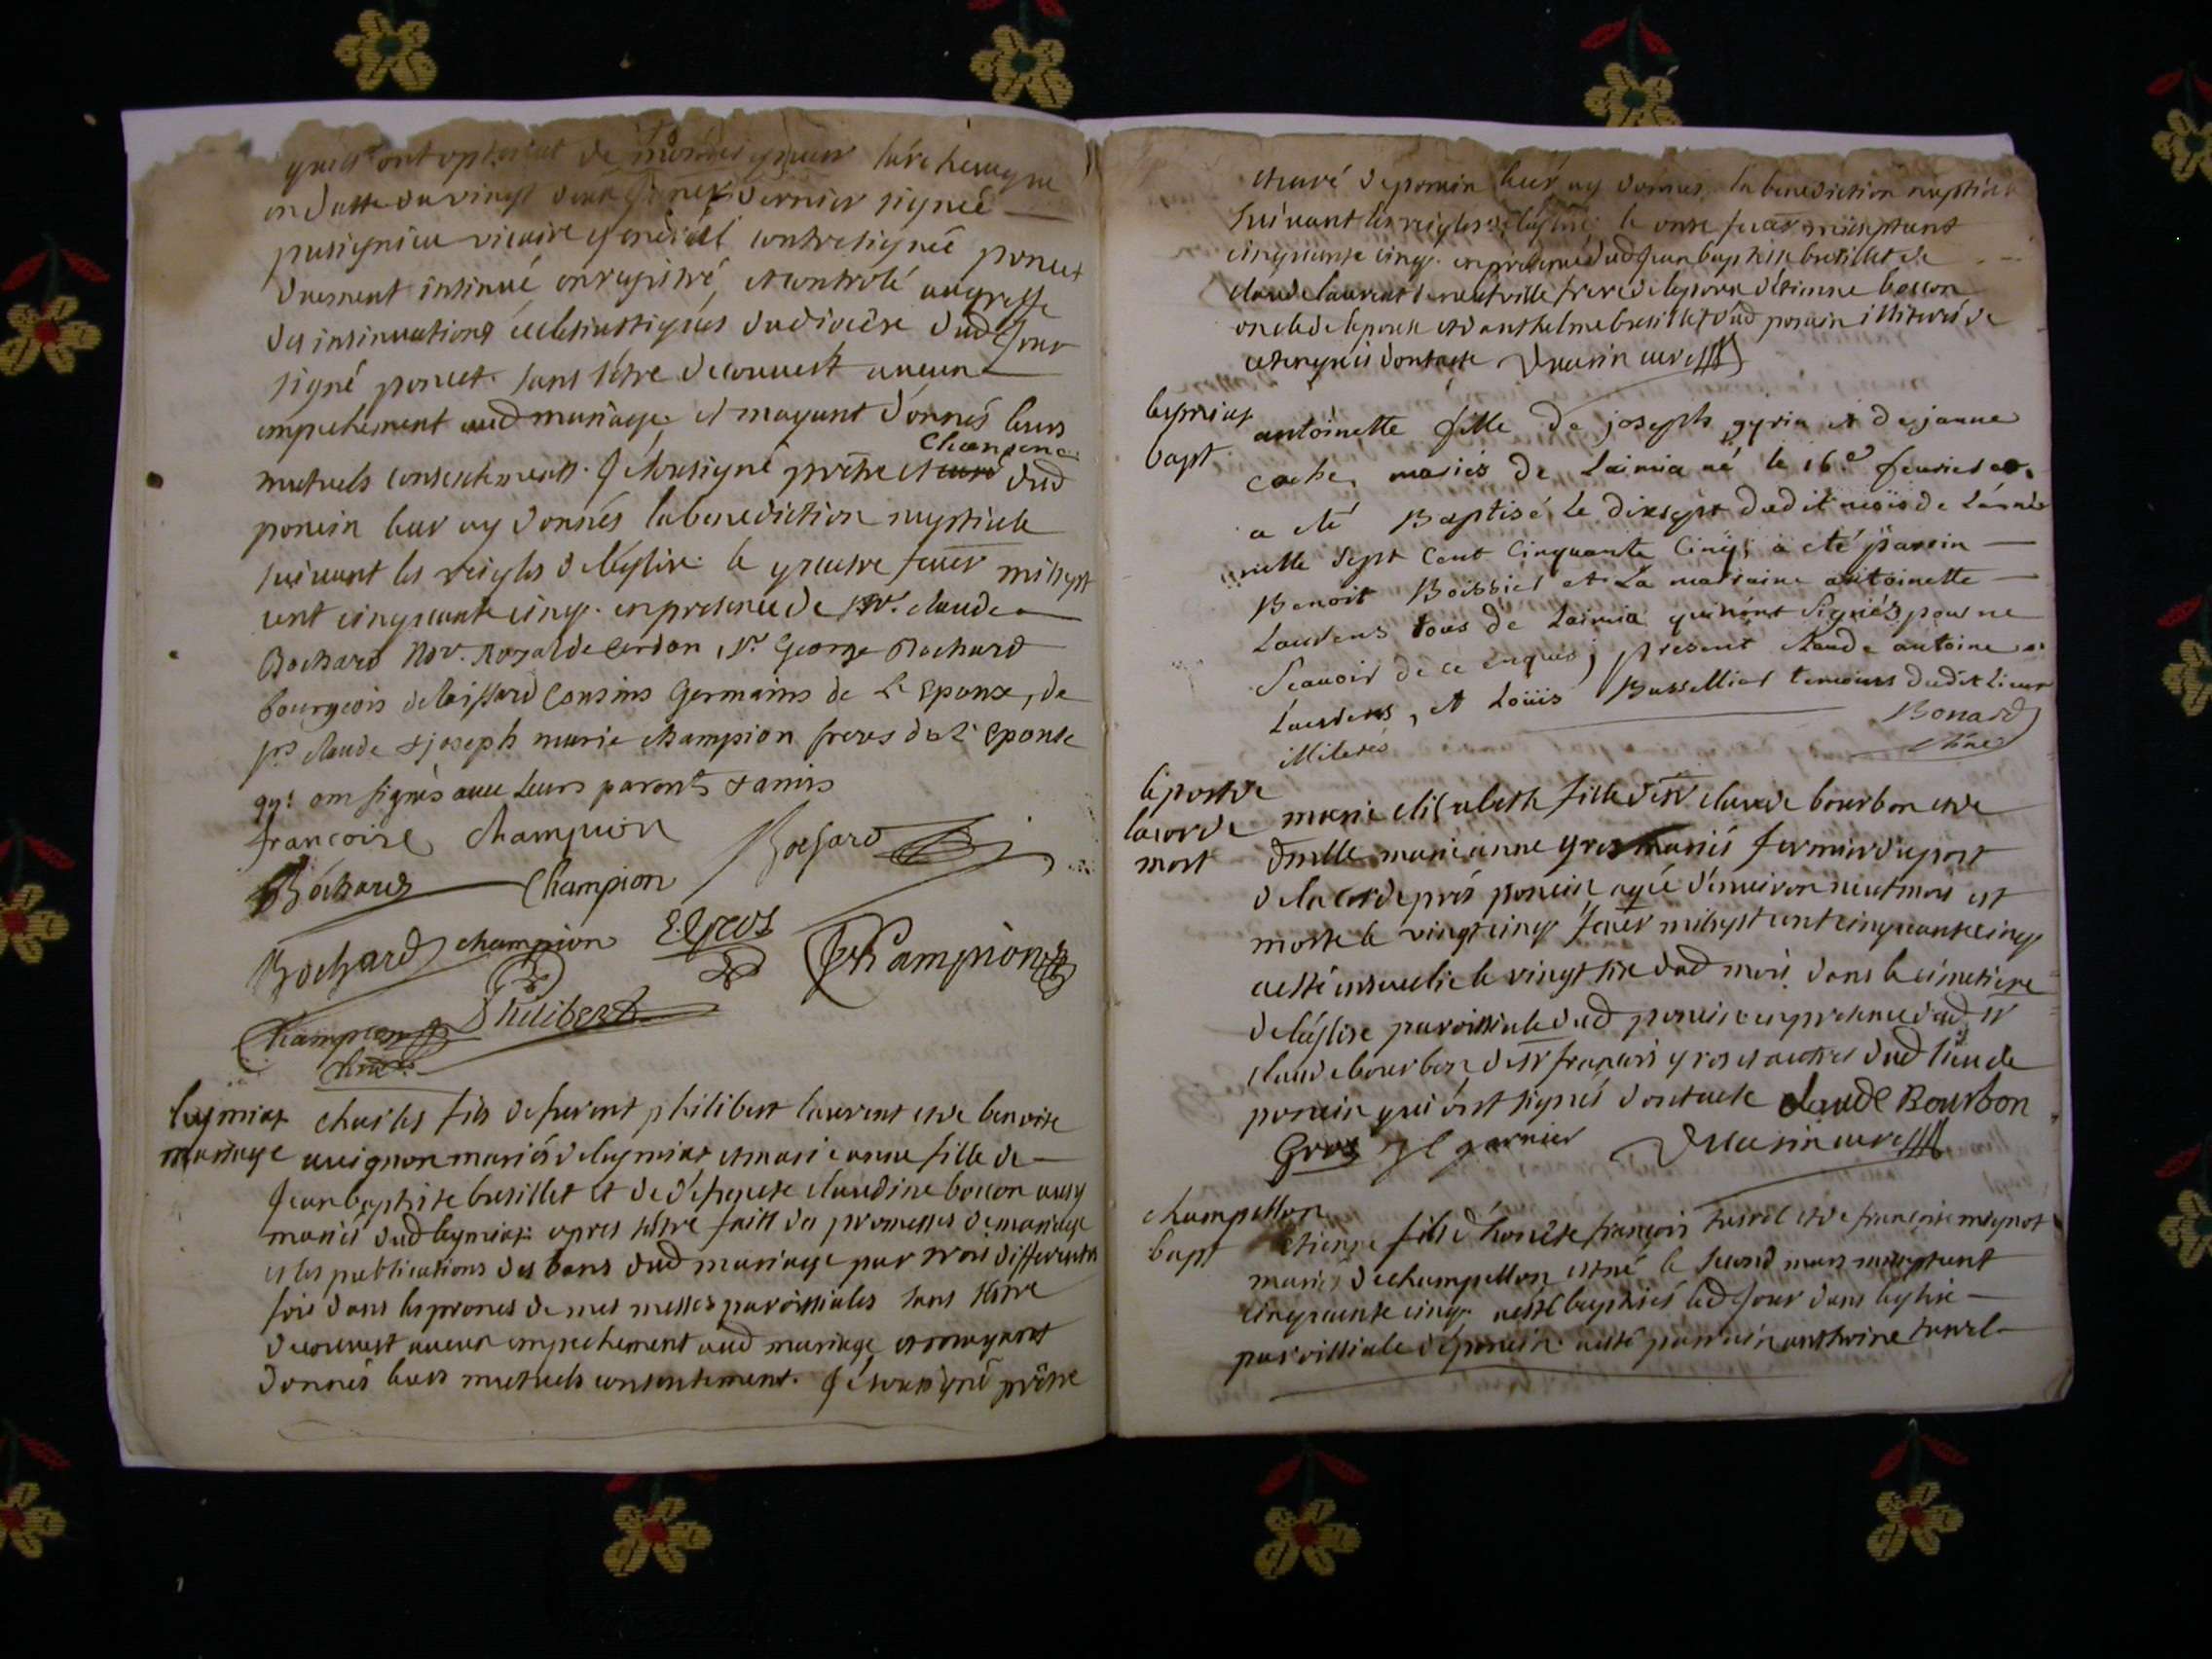 quils ont de monseigneur
en datte du vingt dernier signée
vicaire general contresignée poncet
duement insinué, enregistré, et controlé au greffe
des insinuations ecclesiastiques du diocèse dud jour
signé poncet. sans s'être decouvert aucun
empechement aud mariage. et mayant donnés leurs
mutuels consentements. je soussigné prêtre et curé Chanoine dud
poncin leur ay donnés la benediction nuptiale
suivant les reigles de l'eglise. le quatre fevr milsept
cent cinquante cinq. en presence de Mr. claude
Bochard Nore. Royal de Cerdon, Sr. George Bochard
bourgeois Cousins Germains de L'Epoux, de
Srs claude & joseph marie champion freres de L'Epouse
qui ont signés avec Leurs parents & amis
francoise Champion Bochard
Bochard Champion
Bochard champion Gros Champion
Champion Philibert
leymiat
mariage
charles fils de fut philibert laurent et de benoite
avignon mariés de leymiat et marie anne fille de
jean baptiste bresillet et de defuncte claudine bocon aussy
mariés dud leymiat. apres s'être faitt des promesses de mariage
et les publications des bans dud mariage par trois differentes
fois dans les prones de mes messes paroissiales sans s'être
decouvert aucun empechement aud mariage et mayant
donnés leurs mutuels consentement. je soussigné prêtre
et curé de poncin leur ay donnés la benediction nuptiale
suivant les reigles de l'eglise le onze fevr milseptcent
cinquante cinq. en presence dud jean baptiste bresillet de
claude laurent frere de lepoux d'étienne bocon
oncle de lepouse et d'anthelme bresillet dud poncin illiterés de
ce enquis dont acte curé
leymiat
bapt
antoinette fille de joseph gyria et de janne
coche, mariés de Laimia né le 16.e feurier et
a eté Baptisé, Le dixsept dudit mois de L'année
mille sept Cent Cinquante Cinq; a eté parein
Benoit Boissiet et La marraine antoinette
Laurens tous de Laimia qui n'ont Signés pour ne
Scavoir de ce enquis; present Claude antoine
Laurens, et Loüis temoins dudit Lieu
illiterés Bonard
le port de
la corde
mort
marie elisabeth fille de Sr claude bourbon et de
dmlle marie anne gros mariés fermier du port
de la corde prés poncin agée d'environ neuf mois est
morte le vingt cinq fevr milsept cent cinquante cinq
a esté ensevelie le vingt six dud mois dans le cimetiere
de l'église paroissiale dud poncin en presence dud Sr
claude bourbon, de Sr francois gros et autres dud lieu de
poncin qui ont signés dont acte claude Bourbon
Gros garnier curé
champellon
bapt
etienne fils d'honète françois et de francoise mignot
mariés de champellon est né le second mars milseptcent
cinquante cinq. a esté baptisés led jour dans leglise
paroissiale de poncin. a esté parrein anthoine